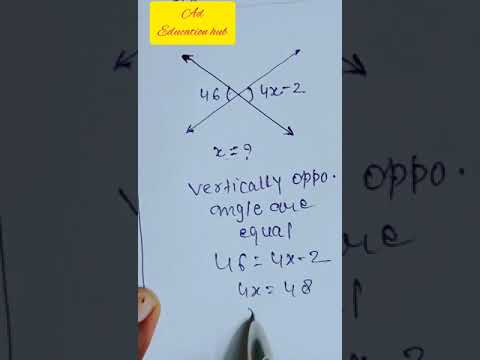 Ad
Education hub
46
4x-2
x=?
vertically oppo.
angle are
equal
46=4x-2
4x=48